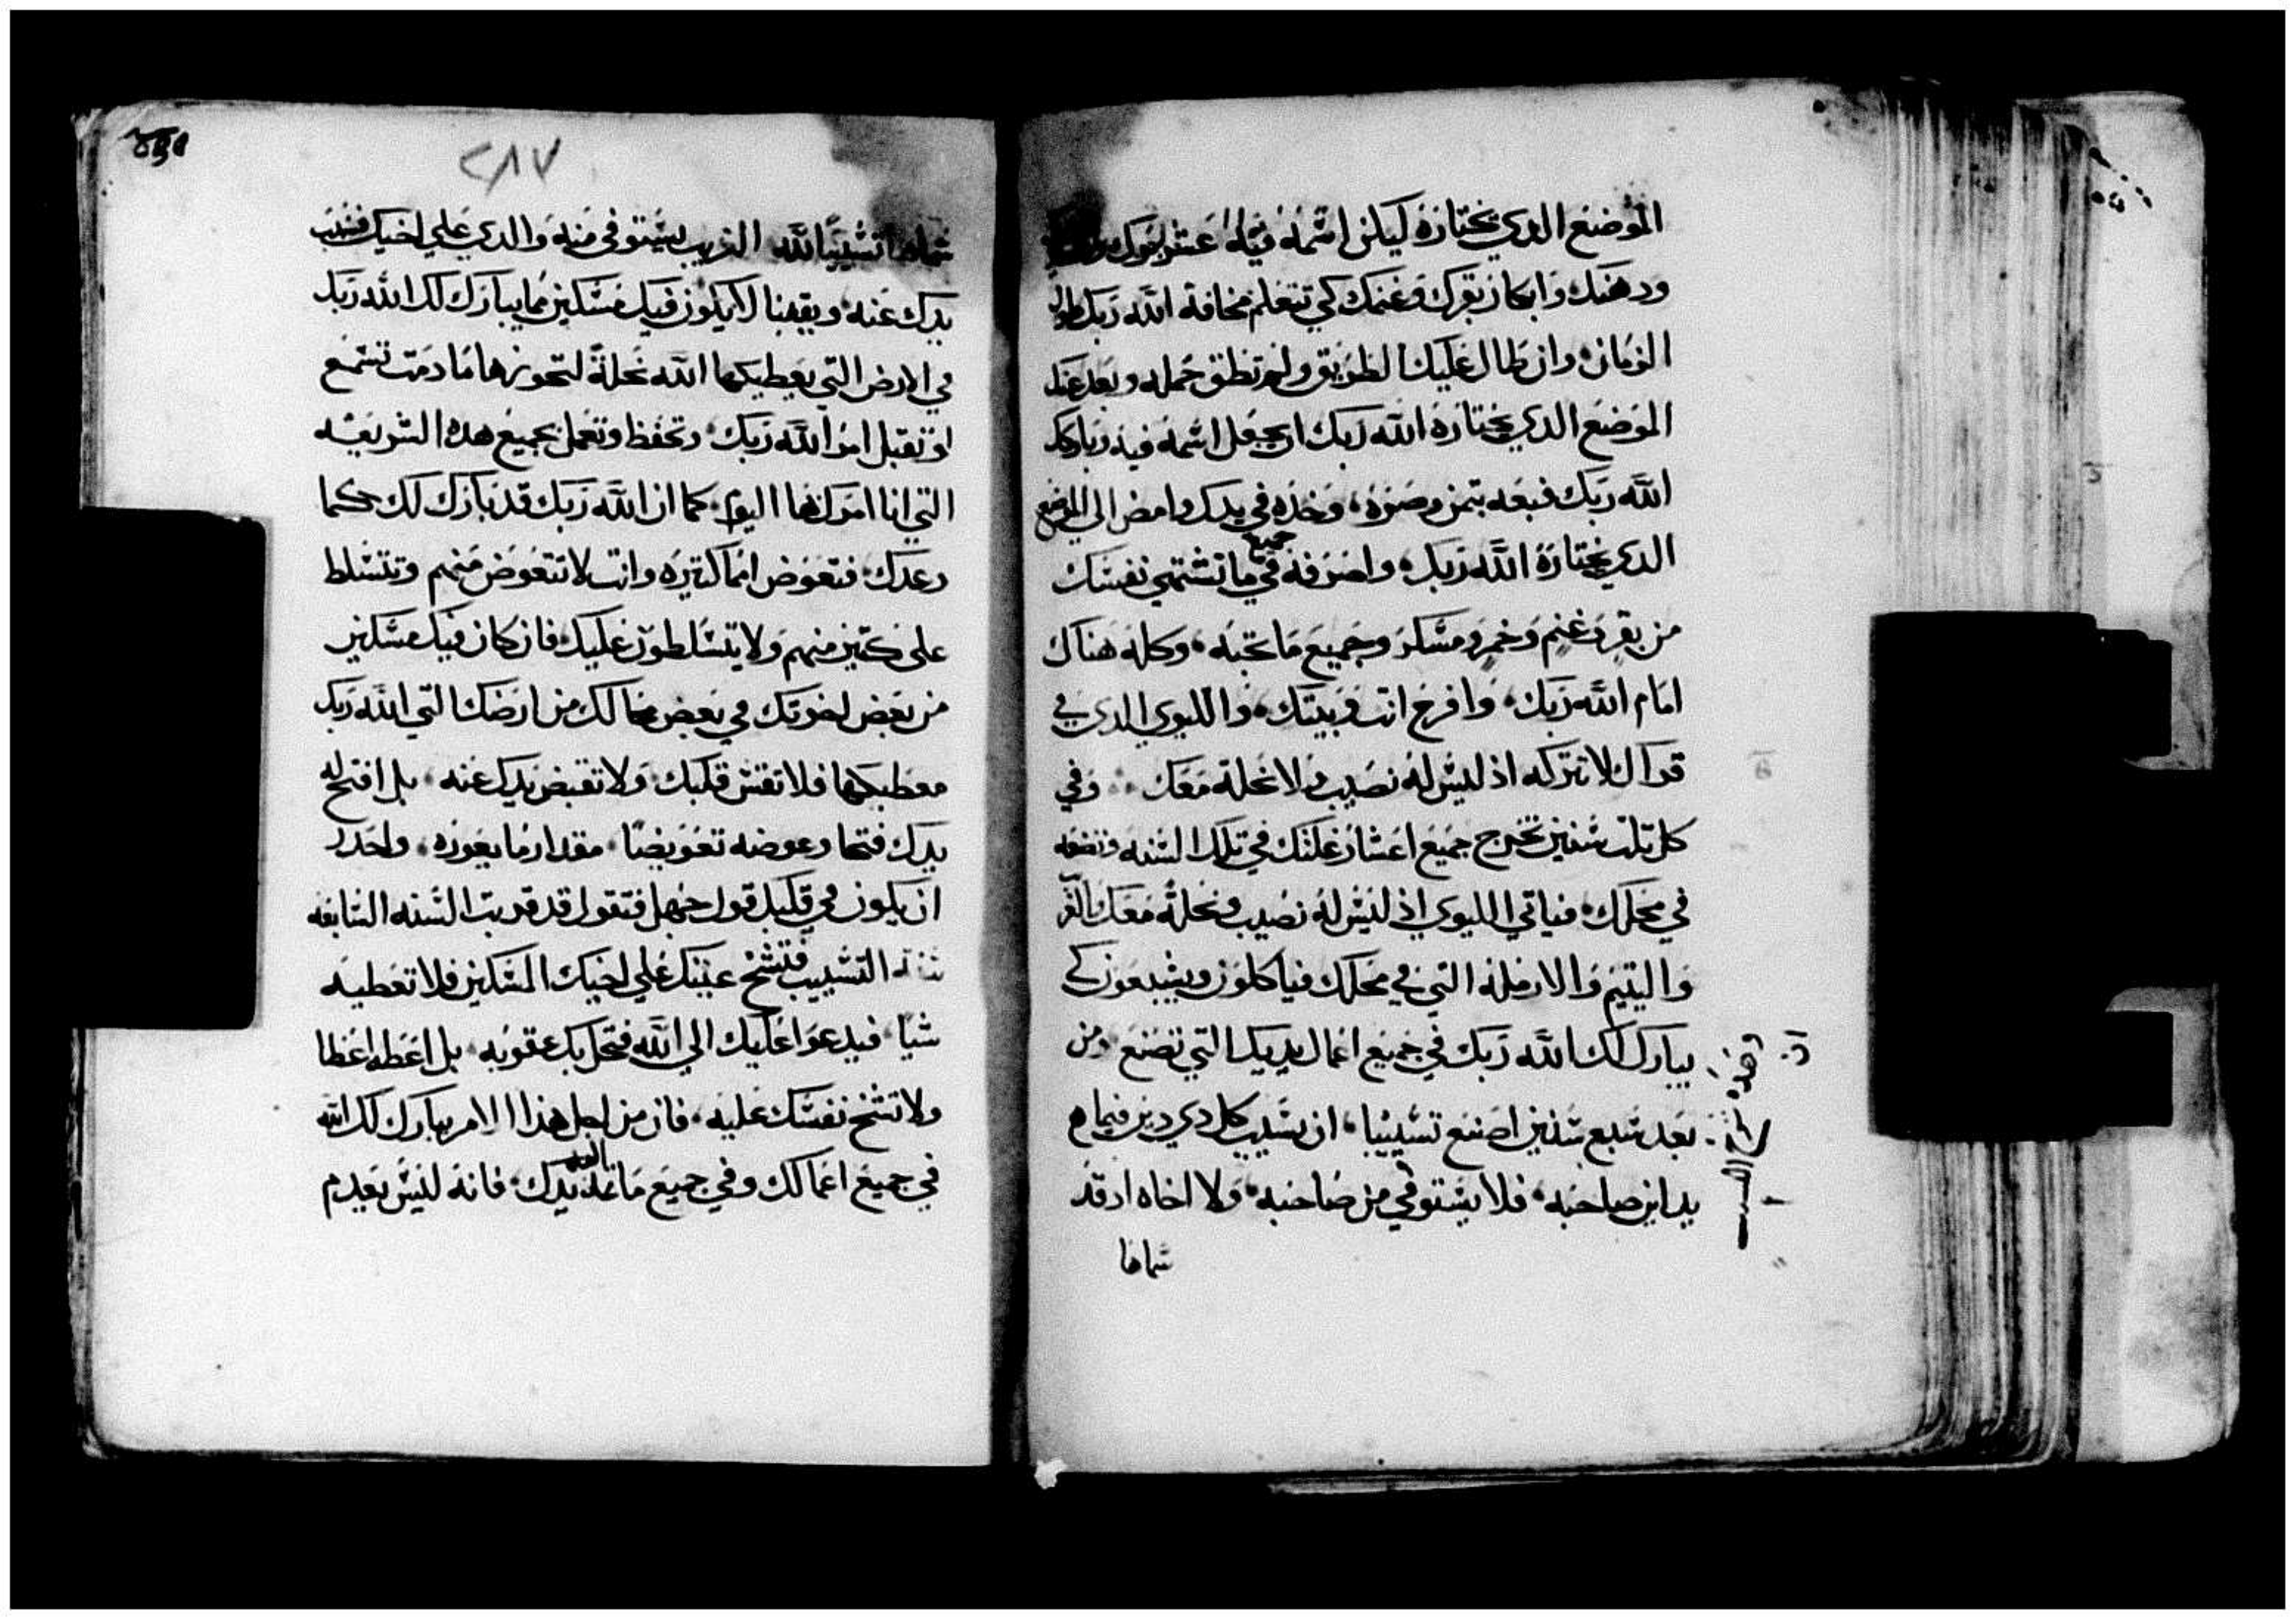 الموضع الدي يختاره ليكن اسمه فيه عشر برك
ودهنك وابكار بقرك وغنمك كي تتعلم مخافة الله ربك طول
الزمان وان طال عليك الطريق ولم تطق حمله وبعد عنك
الموضع الدي يختاره الله ربك ان يجعل اسمه فيه وباركك
الله ربك فبعه بتمن وصره وخده في يدك وامض الي الموضع
الدي يختاره الله ربك واصرفه في جميع ما تشتهي نفسك
من بقر وغنم وخمر ومسكر وجميع ما تحبه وكله هناك
امام الله ربك وافرح انت وبيتك والليوي الدي في
قراك لا تتركه اذ ليس له نصيب ولا نحلة معك وفي
كل تلت سنين تخرج جميع اعشار غلتك في تلك السنه وتضعه
في محلك فياتي الليوي اذ ليس له نصيب ونحلة معك والغر
واليتيم والارمله التي في محلك فياكلون ويشبعون كي
يبارك لك الله ربك في جميع اعمال يديك التي تصنع ومن
بعد سبع سنين اصنع تسييبا ان يسيب كل دي دين فيما
يداين صاحبه فلا يستوفي من صاحبه ولا اخاه اد قد
سماها
٢٨٧
سماها تسييبا لله الغريب يستوفي منه والدي علي اخيك فسيب
يدك عنه ويقينا لا يكون فيك مسكين مما يبارك لك الله ربك
في الارض التي يعطيكها الله نحلة لتحوزها ما دمت تسمع
او تقبل امر الله ربك وتحفظ وتعمل بجميع هده الشريعه
التي انا امرك بها اليوم كما ان الله ربك قد بارك لك كما
وعدك فتعوض امما كتيره وانت لا تتعوض منهم وتتسلط
على كتير منهم ولا يتسلطون عليك فان كان فيك مسكين
من بعض اخوتك في بعض محالك من ارضك التي الله ربك
معطيكها فلا تقس قلبك ولا تقبض يدك عنه بل افتح له
يدك فتحا وعوضه تعويضا مقدار ما يعوزه واحدر
ان يكون في قلبك قول جهل فتقول قد قربت السنه السابعه
سنة التسييب فتشح عينك علي اخيك المسكين فلا تعطيه
شيا فيدعوا عليك الي الله فتحل بك عقوبه بل اعطه اعطا
ولا تشح نفسك عليه فان من اجل هذا الامر يبارك لك الله
في جميع اعمالك وفي جميع ما تمد يدك فانه ليس يعدم